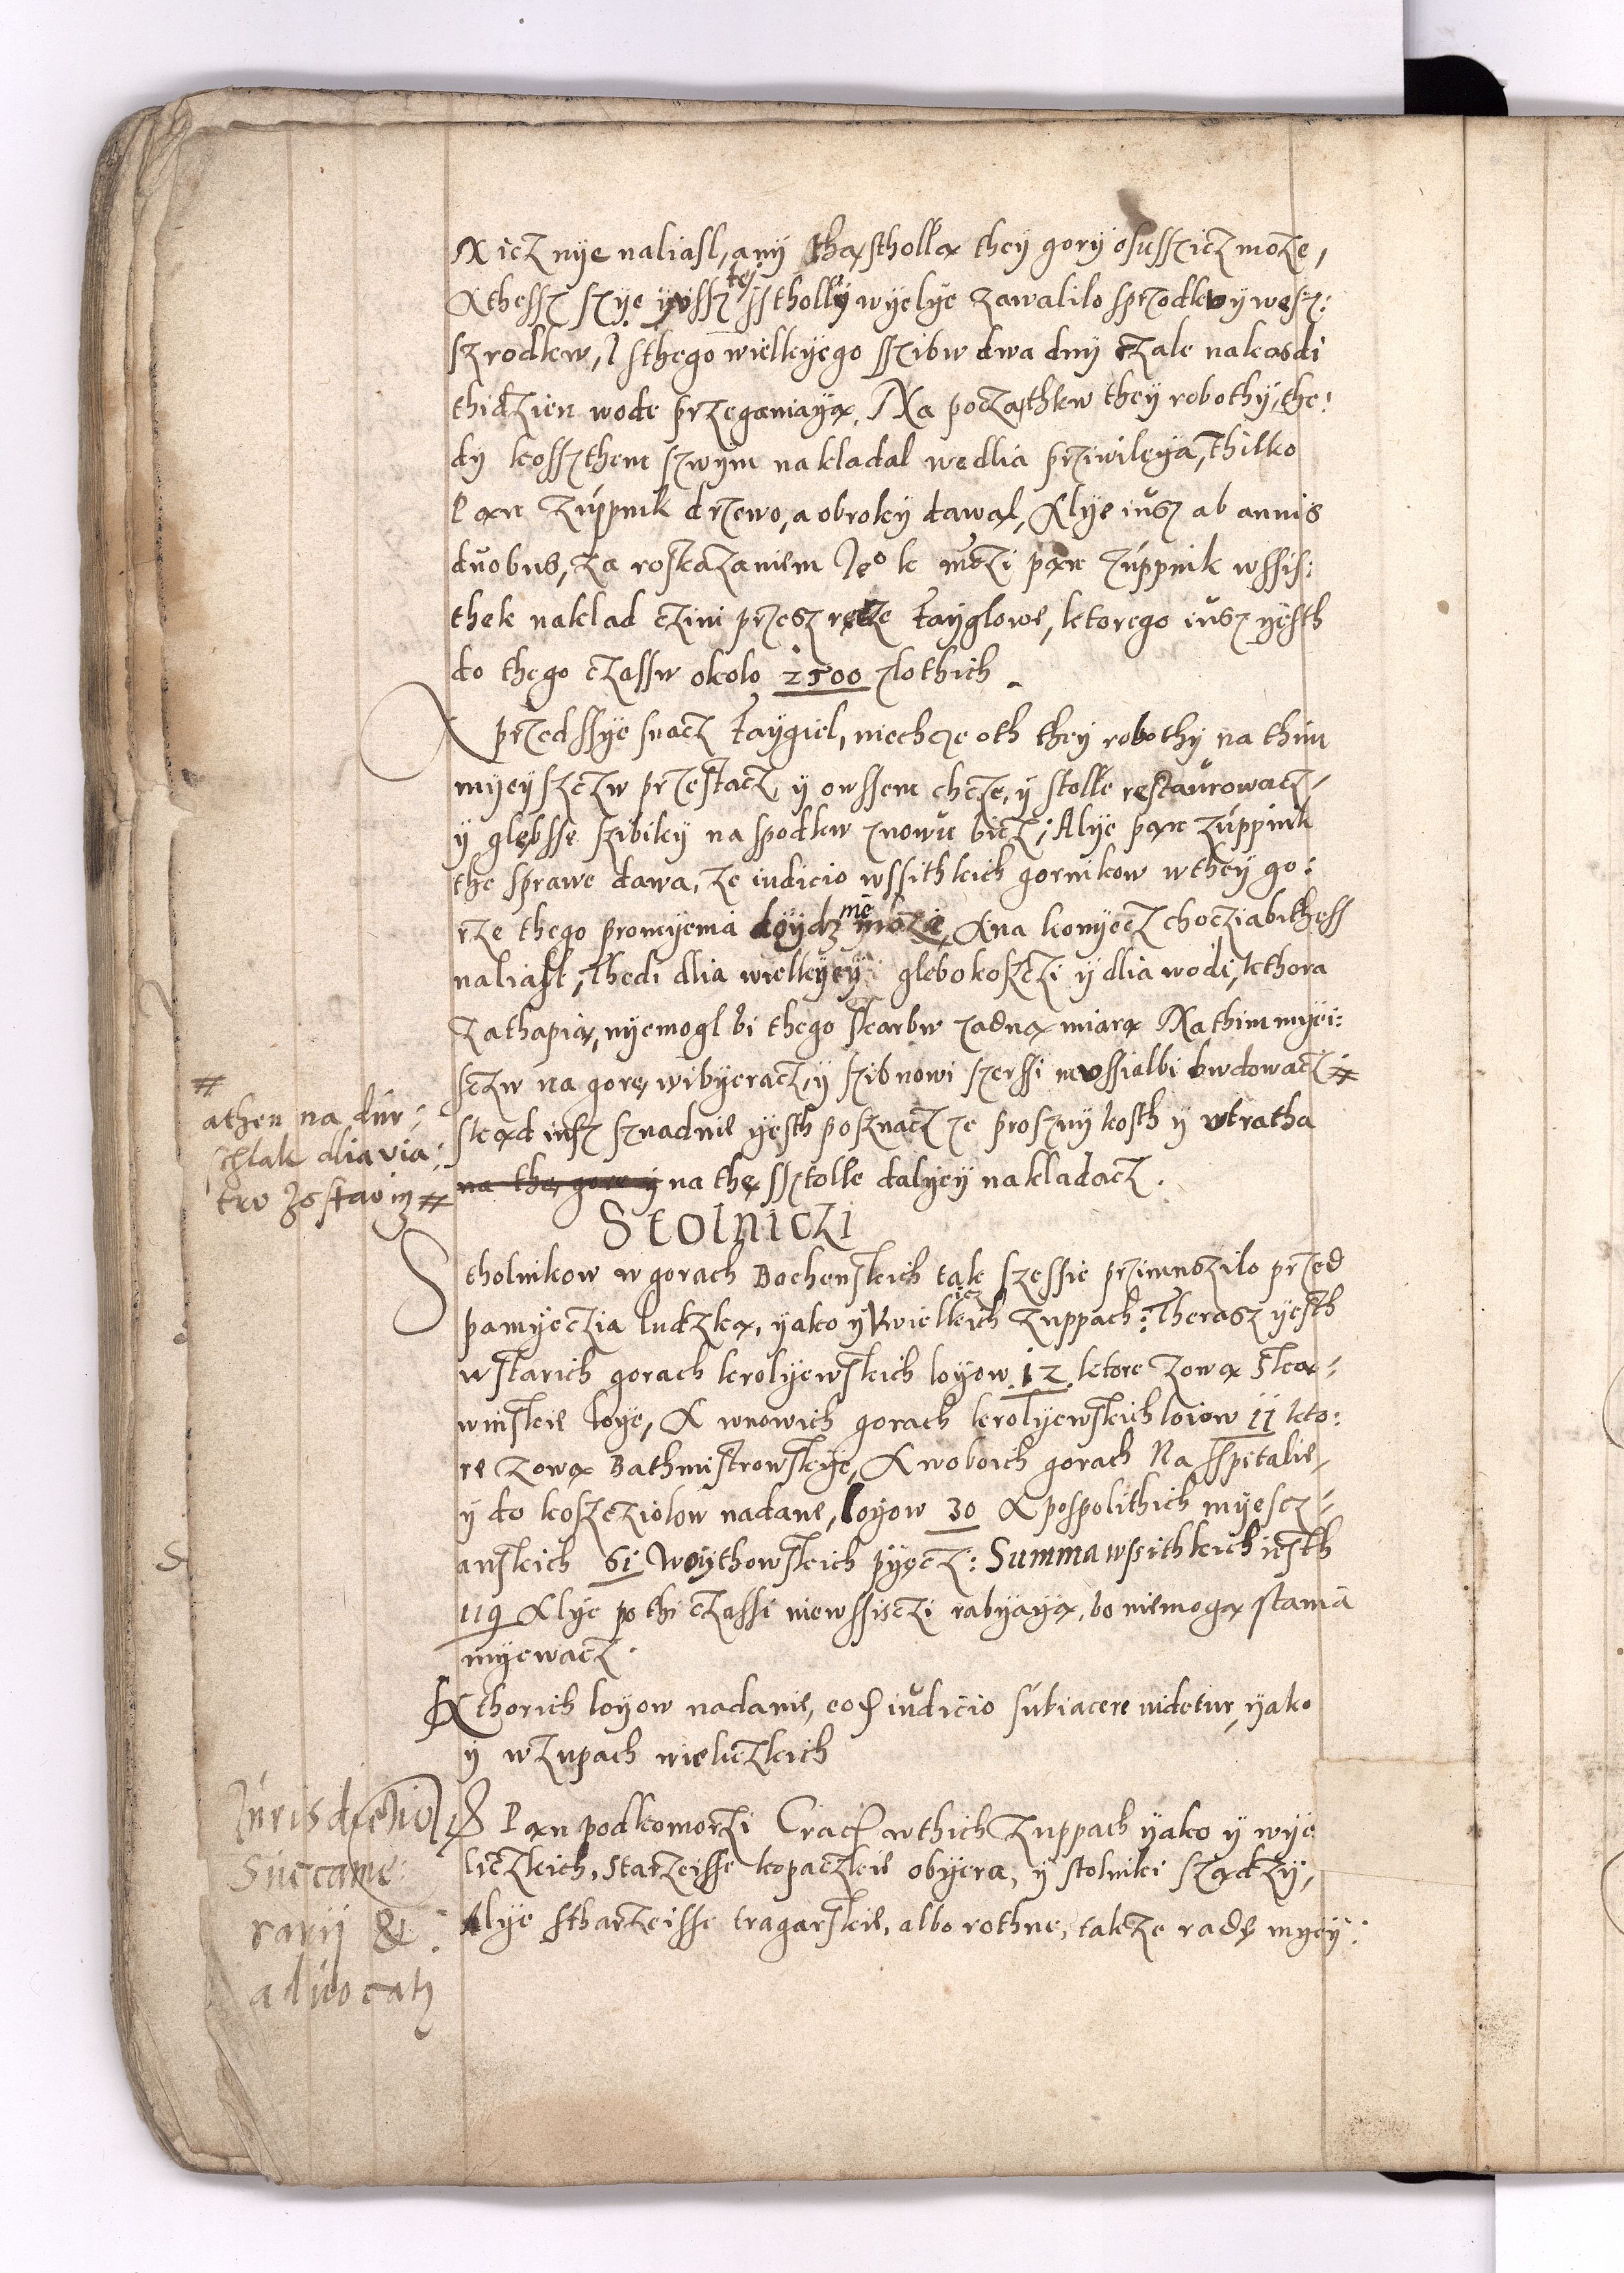 Nicz nye naliasl, any tha stholla they gory osussicz moze,
A thessz szye yvssz tej sstholly wyelye zawalilo sprzodkv y wesz:
szrodkw, I sthego wielkyego sszibw dwa dny czale nakasdi
thidzien wode przeganiaya. Na poczathkw they robothy, the:
dy kosszthem szwym nakladal wedlia priwileya, Thilko
Pan Zuppnik drzewo, a obroky dawal, Alye iusz ab annis
duobus, za roskazaniem Je° k mczi pan zuppnik wssis:
thek naklad czini przesz recze Fayglowe, ktorego iusz yesth
do thego czassw okolo 2500 zlothich
A przedssye snacz Faygiel, niechcze oth they robothy na thim
myeyszczw przestacz, y owssem chcze, y stolle restaurowacz
y glebsse szibiky na spodkw znowu bicz; Alye pan zuppnik
the sprawe dawa, ze iudicio wssithkich gornikow w they go:
rze thego promyenia doydz nie moze, A na konyecz choczia bi thess
naliasl, Thedi dlia wielkyey glebokosczi y dlia wodi, kthora
zathapia, nyemogl bi thego skarbw zadna miara Na thim myei:
sczw na gore wibyeracz, y szib nowi szerssi mussialbi bwdowacz #
skad insz sznadnie yesth posznacz ze proszny kosth y utratha
na tha gore y na the ssztolle dalyey nakladacz.
#
a then na dur:
schlak dlia via:
tru zostawiz #
Stolniczi
Stholnikow w gorach Bochenskich tak szessie przimnozilo przed
pamyeczia ludzka, yako y Vwielkich icz zuppach: Therasz yesth
w starich gorach krolyewskich loyow 12 ktore zowa Ska
winskie loye, A wnowich gorach krolyewskich loiow 11 kto:
re zowa Bathmistrowskye, A woboich gorach Na sspitalie
y do kosczciolow nadane, loyow 30 A pospolithich myescz
anskich 61 Woythowskich pyecz: Summa wssithkich iesth
119 Alye po thi czassi niewssisczi rabyaya, bo niemoga stania
myewacz.
Kthorich loyow nadanie, eod iudicio subiacere videtur, yako
y wzupach wieliczkich
Jurisdictio
Succame:
rarij &:
advocatj
Pan podkomorzi Crac wthich zuppach yako y wye
liczkich, Starzeisse kopaczkie obyera, y stolniki szadzy,
Alye stharzeisse tragarskie, albo rothne, takze rade myey: